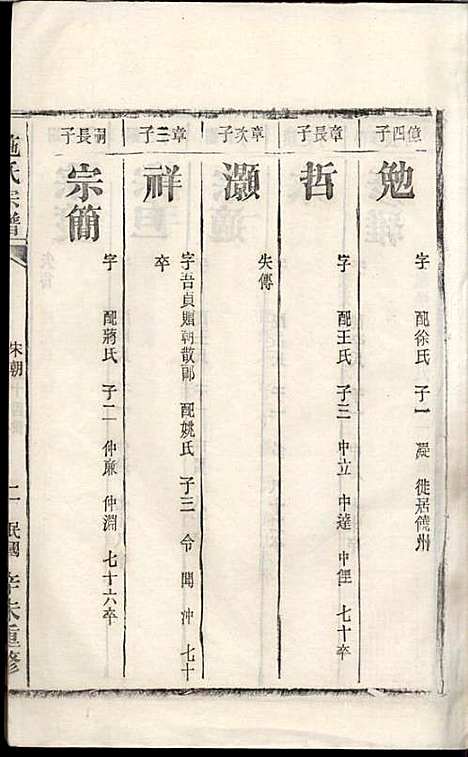 億四子
勉
字 配徐氏 子一 凝 徙居饒州
章長子
哲
字 配王氏 子三 中立 中達 中俚 七十卒
章次子
灝
失傳
章三子
祥
字吾貞贈朝散郎 配姚氏 子三 令聞沖 七十
卒
嗣長子
宗簡
字 配蔣氏 子二 仲廉 仲淵 七十六卒
施氏宗譜
宋朝
二
民國辛未重修